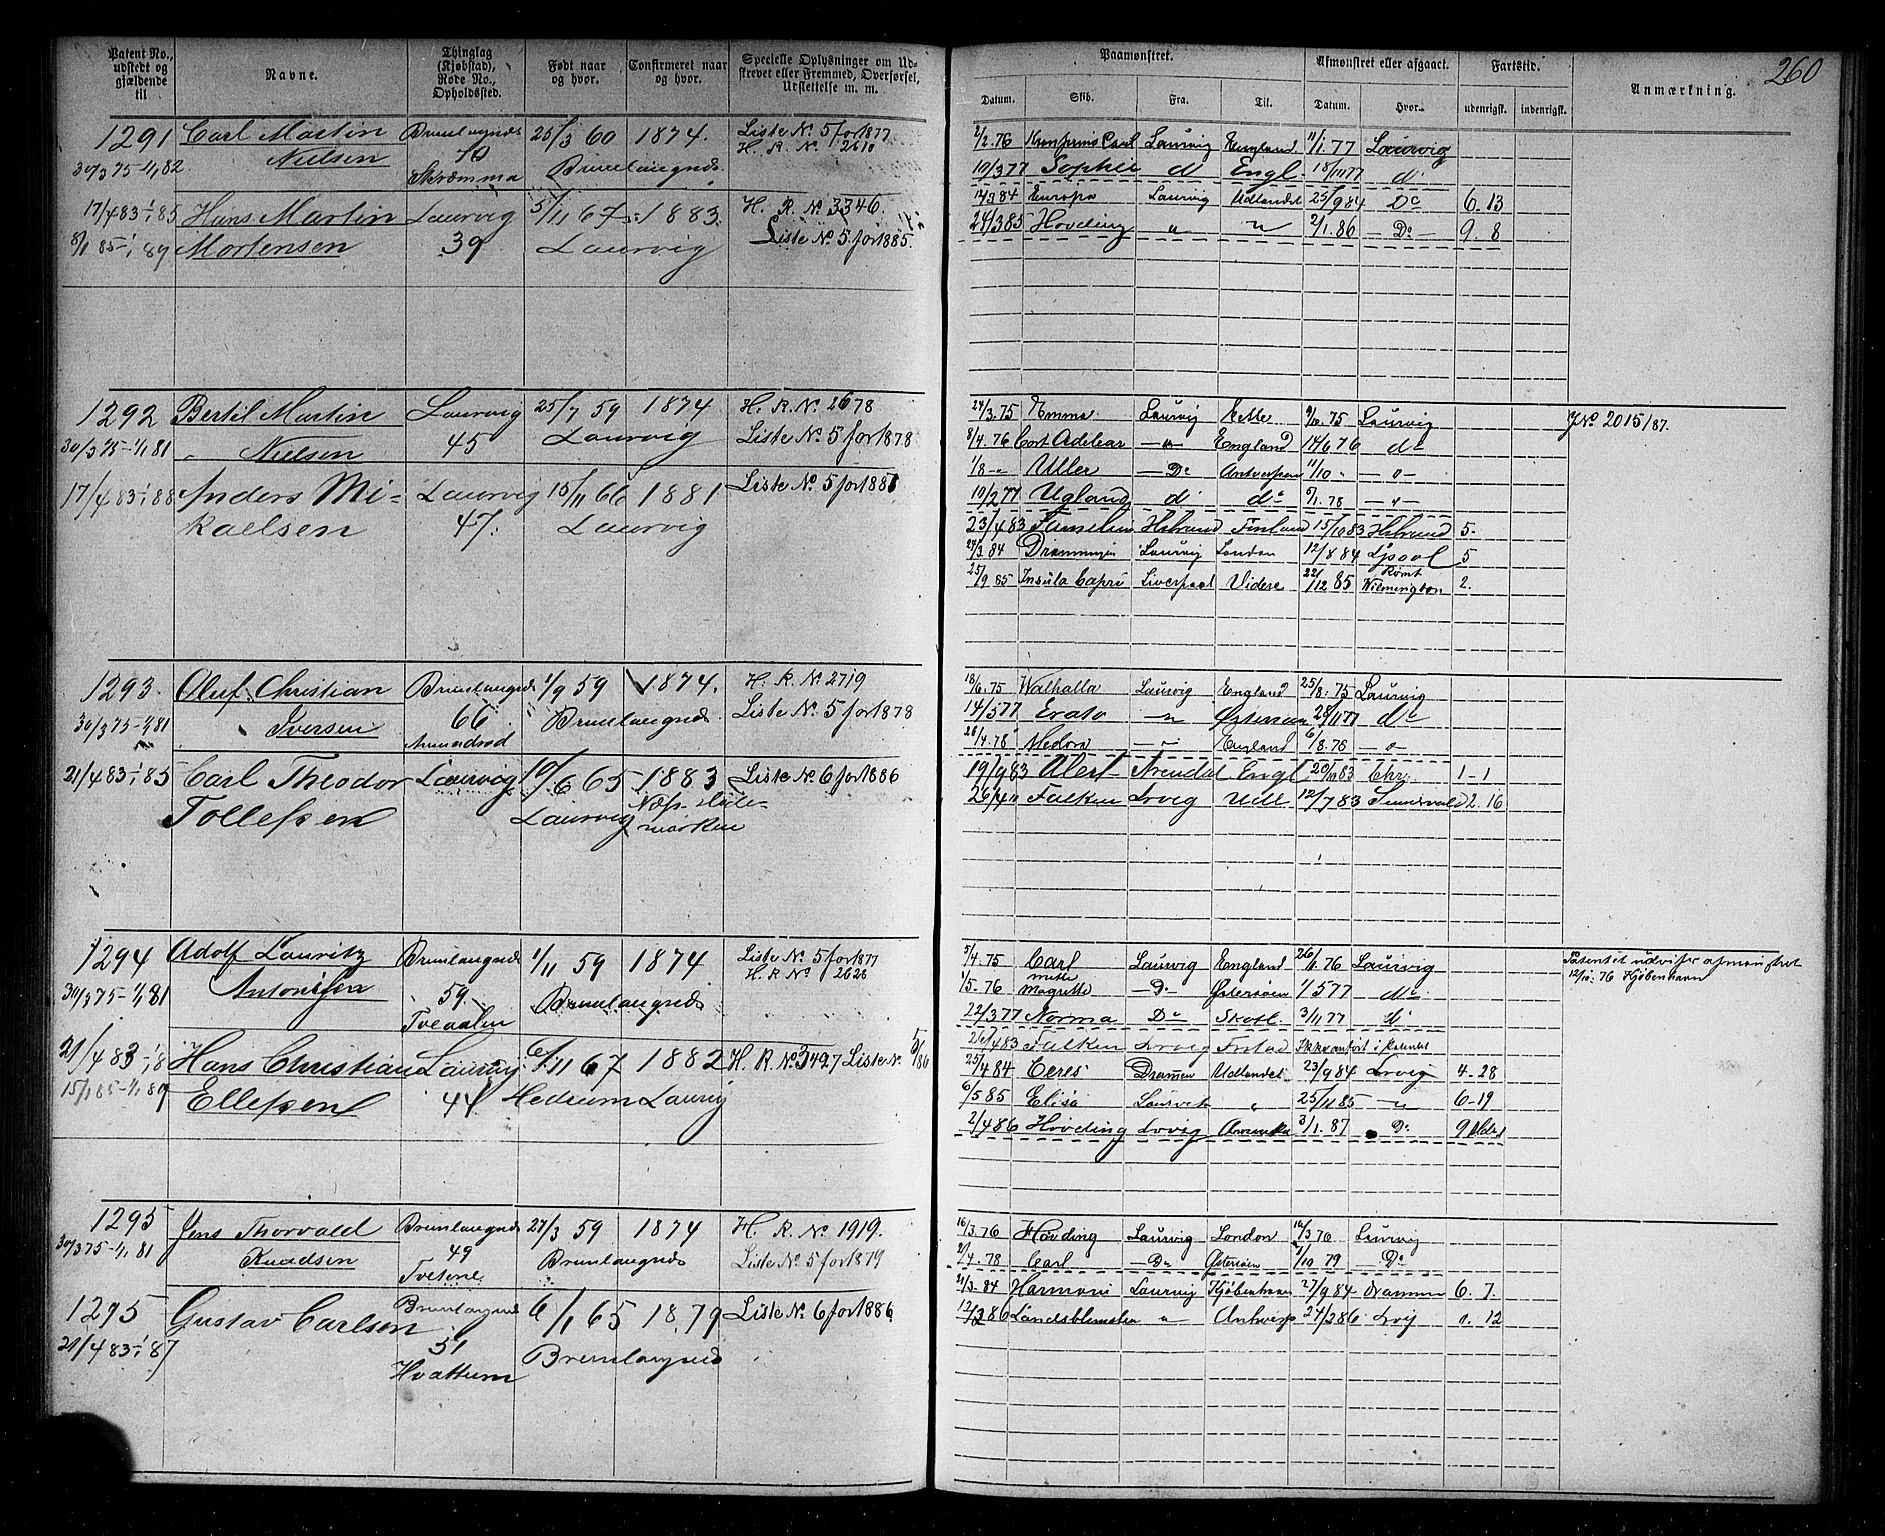 260
Patent No., udstedt og gjældende til
Navne.
Thinglag (Kjøbstad), Rode No., Opholdssted.
Født naar og hvor.
Confirmeret naar og hvor.
Specielle Oplysninger om Udskrevet eller Fremmed, Overførsel, Udslettelse m. m.
Paamønstret.
Afmønstret eller afgaaet.
Fartstid.
Anmærkning.
Datum. Skib. Fra. Til. Datum. Hvor. udenrigsk. indenrigsk.
1291 Carl Martin Brunlangnds 25/3 60 1874. Liste No 5 for 1877
30/3 75-1/1 82 Nielsen 40 Brunlangnds H. R. No 2610
Skræmma
17/4 83-1/1 85 Hans Martin Laurvig 5/11 67 1883. H. R. No 3346.
8/1 85-1/1 89 Mortensen 39 Laurvig Liste No 5 for 1885.
2/2 76 Kronprins Carl Laurvig England 11/1 77 Laurvig
10/3 77 Sophie d Engl 18/11 77 d
14/3 84 Europa Laurvig Udlandet 25/9 84 Do 6. 13
24/3 85 Hovding " " 2/1. 86 - Do - 9. 8
1292 Bertil Martin Laurvig 25/7 59 1874 H. R. No. 2678
30/3 75-1/1 81 Nielsen 45 Laurvig Liste No. 5 for 1878
17/4 83-1/1 88 Anders Mi- Laurvig 15/11 66 1881 Liste No. 5 for 188
kaelsen 47. Laurvig
24/3. 75 Emma Laurvig 9/10. 75 Laurvig JNo 2015/87.
8/4. 76 Cort Adelear -"- England 14/6 76 do
1/8 -"- Uller - Do Antverpen 11/10 " -"-
10/2 77 Ugland d do 9/1. 78 -"-
23/4 83 Finland 15/10 83 5.
24/3 84 Laurvig London 12/8 84 Lpool 5
25/9 85 Insula Capri Liverpool Videre 22/12 85 Rømt Wilmington 2.
1293. Oluf Christian Brunlangnds 1/9 59 1874. H. R. No. 2719
30/3 75-1/1 81 Iversen 66 Brunlangnds Liste No. 5 for 1878
Amundrød
21/4 83-1/1 85 Carl Theodor Laurvig 10/6 65 1883 Liste No 6 for 1886
Tollefsen Laurvig
18/6. 75 Walhalla Laurvig England 25/8. 75 Laurvig
14/5 77 Erato -"- Østersøen 28/11 77 do
26/4. 78 Medora -"- England 6/8. 78 -"-
19/9 83 Alert Arendal Engl 20/10 83 Chr. 1-1
26/4 " Falken Lrvig Udl 12/7 83 2. 16
1294 Adolf Lauritz Brunlangnds 1/11 59 1874 Liste No 5 for 1877
30/3 75-1/1 81 Antonisen 59. Brunlangnds H. R. No 2626
Tveaalen
21/4 83-1/1 8 Hans Christian Laurvig 6/11 67 1882 H. R. No. 3427 Liste No. 5/86
15/1 85-1/1 89 Ellefsen 44 Hedrum Laurvig
5/4. 75 Carl Laurvig England 26/11. 76 Laurvig Patentet udviser afmønstret
1/5. 76 Mette Magrette - Do - Østersøen 1/5 77 do 12/10. 76 Kjøbenhavn
22/3 77 Norma Do Skotl. 3/11 77 d
26/4 83 Falken Lrvig Ikke anført i Patentet
25/4 84 Ceres Dramen Udlandet 23/9 84 Lrvig 4-28
6/5 85 Elisa " 25/11 85 -"- 6-19
2/4 86 Hovding Lrvig Amerika 3/1. 87 Do 9 Mdr
1295 Jens Thorvald Brunlangnds 27/3 59 1874 H. R. No. 1919.
30/3 75-1/1 81 Knudsen 49 Brunlangnds Liste No 5 for 1879
Tvetene
1295 Gustav Carlsen Brunlangnds 6/1 65 1879 Liste No. 6 for 1886
21/4 83-1/1 87 51 Brunlangnds
Hvattum
16/3. 76 Hovding Laurvig London Laurvig
2/4. 78 Carl - Do Østersøen 7/10 79 - Do
21/3. 84 Harmoni Laurvig Kjøbenhavn 27/9 84 Drammen 6. 7.
12/2 86 Landsblomsten " Antwerp 24/3 86 Lrvig 0. 12